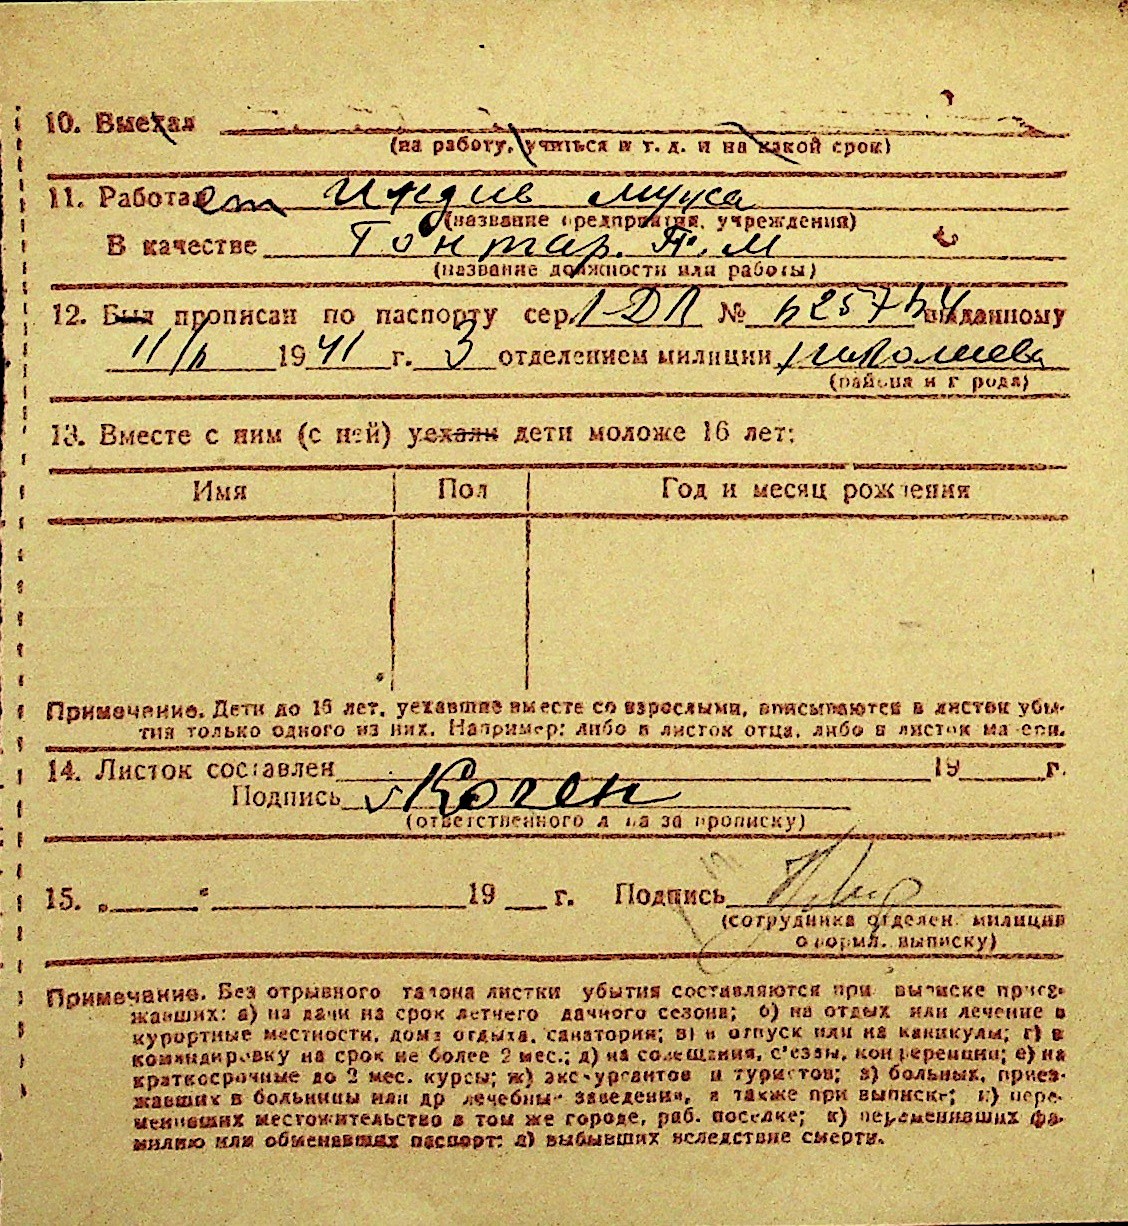 10. Выехал
(на работу, учиться и т. д. и на какой срок)
11. Работает Иждив мужа
(название предприятия, учреждения)
В качестве Гонтар. П. М
(название должности или работы)
12. Был прописан по паспорту сер. № выданному
11/ 1941 г. 3 отделением милиции Николаева
(района и города)
13. Вместе с ним (с ней) уехали дети моложе 16 лет:
Имя Пол Год и месяц рождения
Примечание. Дети до 16 лет, уехавшие вместе со взрослыми, вписываются в листок убы-
тия только одного из них. Например: либо в листок отца, либо в листок матери.
14. Листок составлен 19 г.
Подпись Коген
(ответственного лица за прописку)
15. „ “ 19 г. Подпись
(сотрудника отделен. милиции
оформл. выписку)
Примечание. Без отрывного талона листки убытия составляются при выписке приез-
жавших: а) на дачи на срок летнего дачного сезона; б) на отдых или лечение в
курортные местности, дома отдыха, санатории; в) в отпуск или на каникулы; г) в
командировку на срок не более 2 мес.; д) на совещания, с'езды, конференции; е) на
краткосрочные до 2 мес. курсы; ж) экскурсантов и туристов; з) больных, приез-
жавших в больницы или др лечебные заведения, а также при выписке; и) пере-
менивших местожительство в том же городе, раб. поселке; к) переменивших фа-
милию или обменявших паспорт; л) выбывших вследствие смерти.